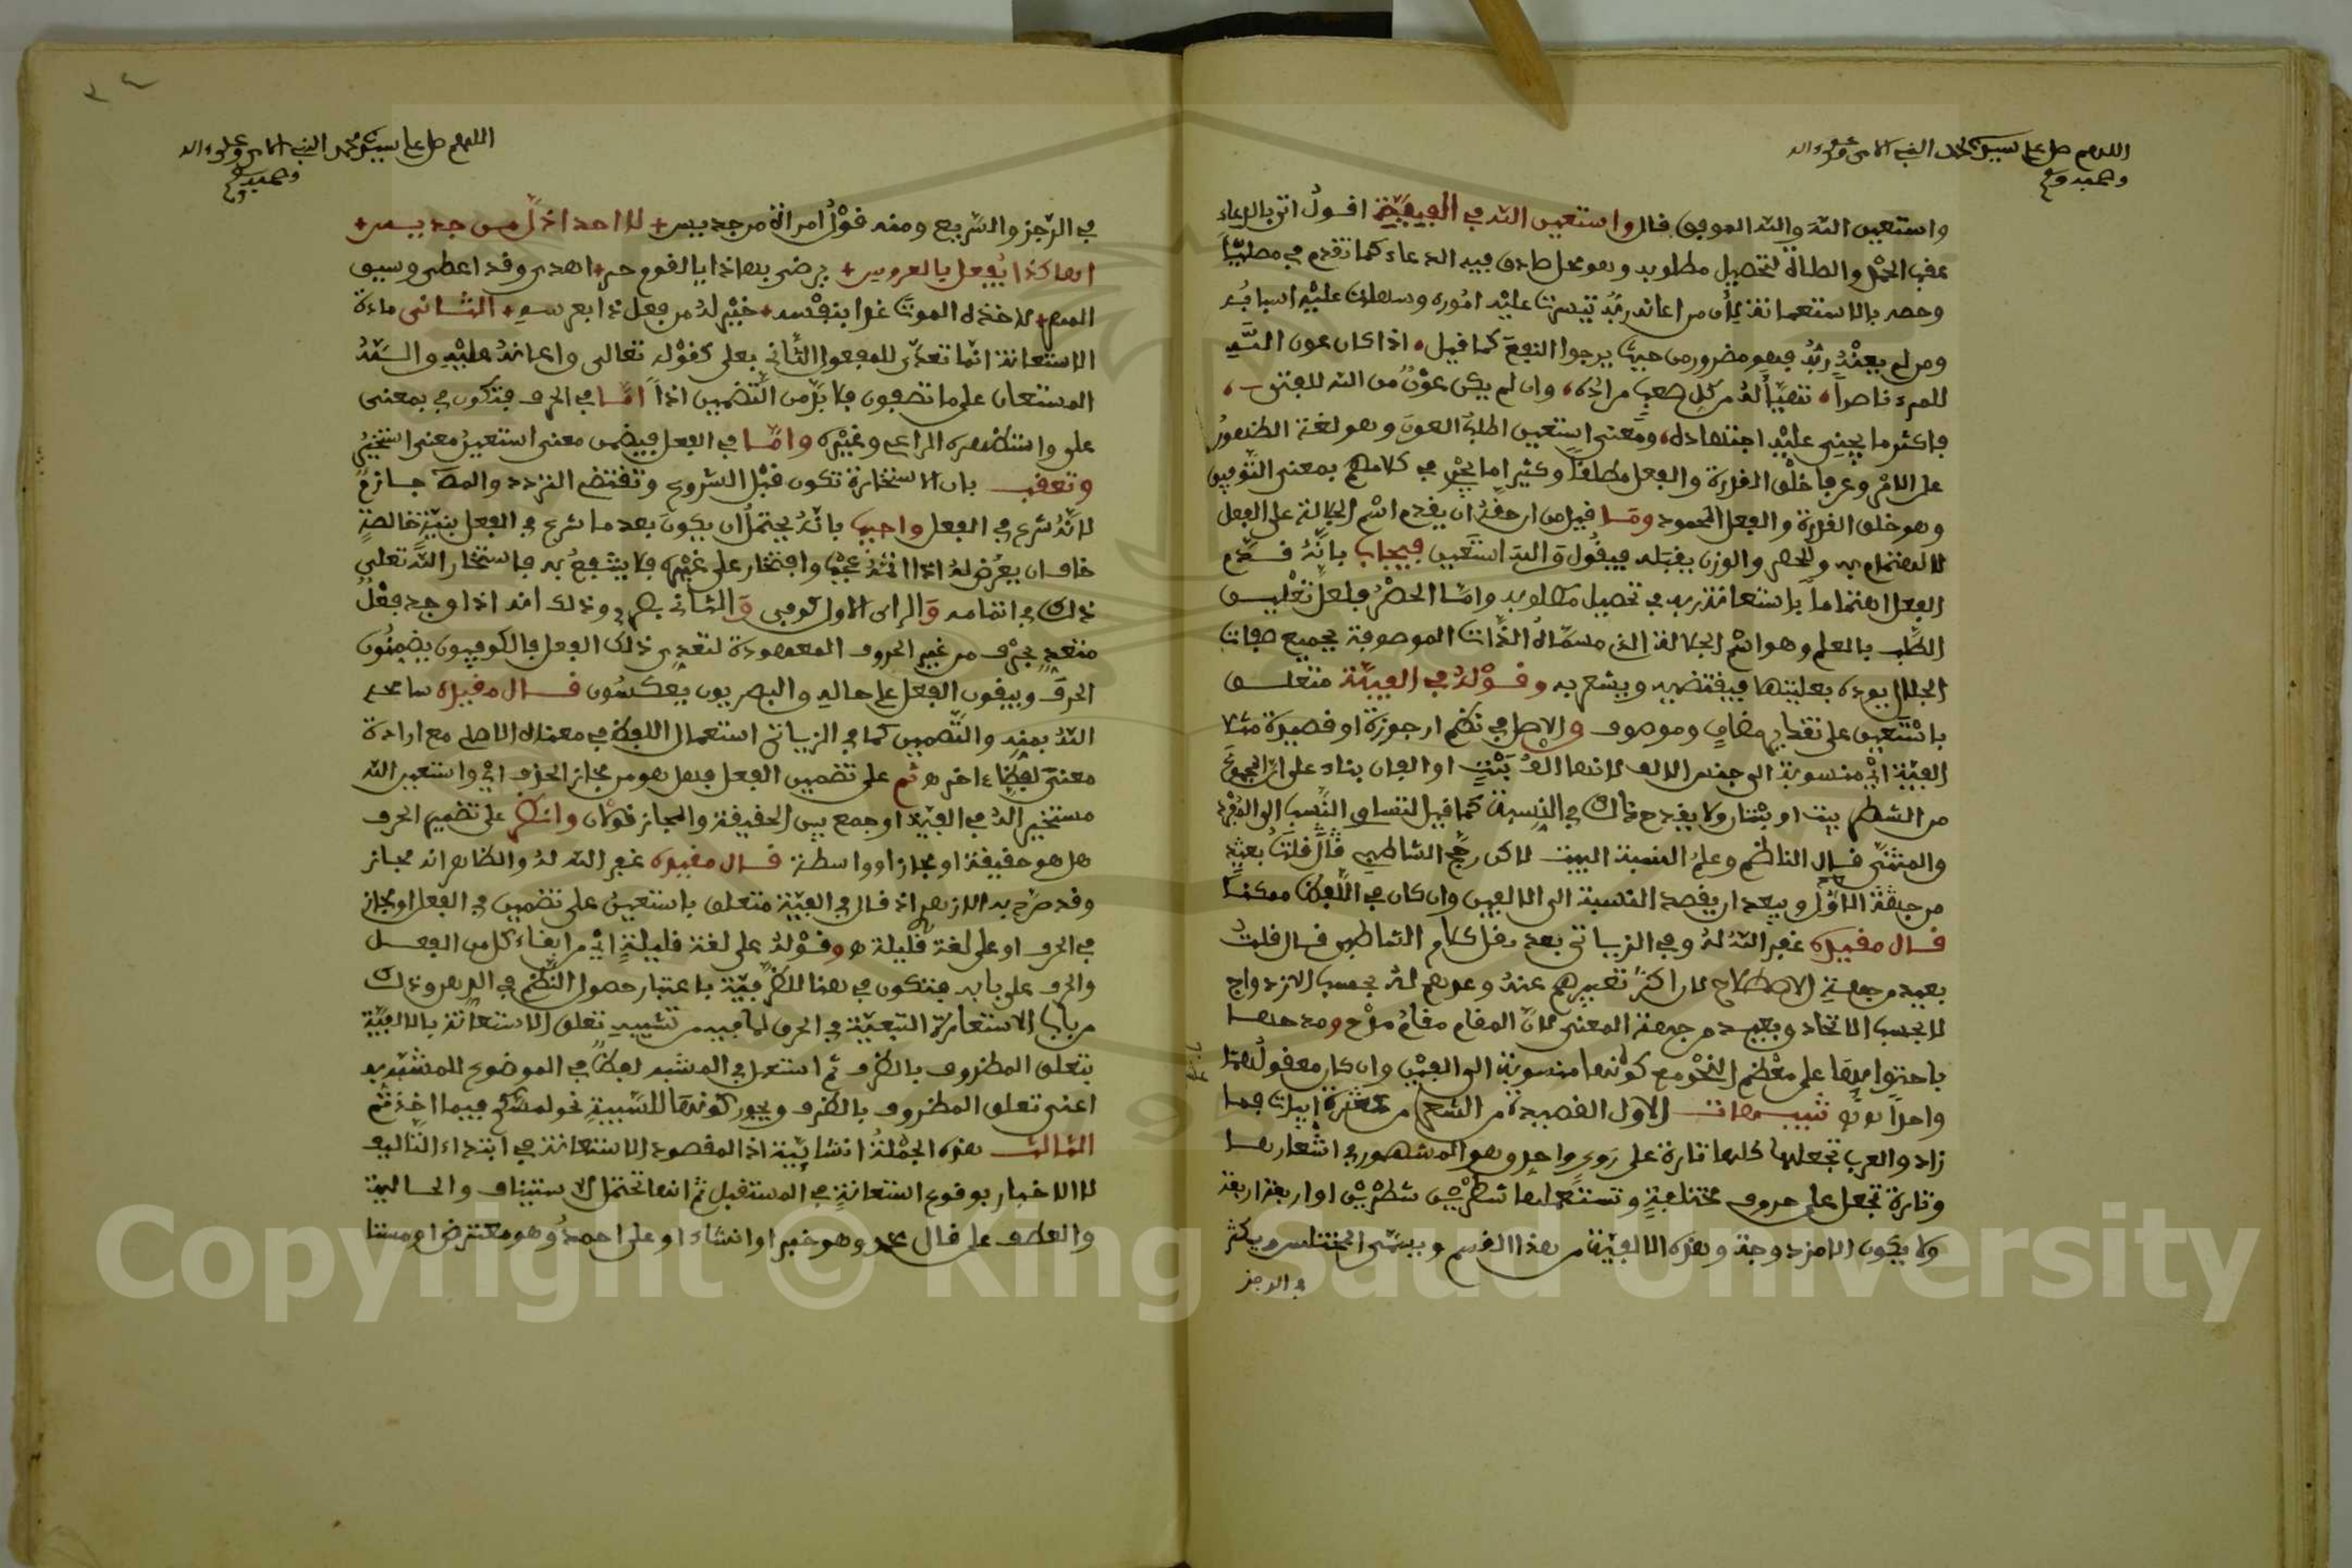 اللهم صل على سيدنا محمد النبي الامي وعلى ءاله
وصحبه وسلم
واستعين الله والله الموفق قال واستعين الله في الفيه اقول اتى بالدعاء
عقب الحمد والصلاة لتحصيل مطلوبه وهو محل صادق فيه الدعاء كما تقدم في
وخصه بالاستعانة لأن من اعانه ربه تيسرت عليه اموره وسهلت عليه اسبابه
ومن لم يعنه ربه فهو مضرور من حيث يرجوا النفع كما قيل اذا كان عون الله
للمرء ناصرا تهيأ له من كل صعب مراده وان لم يكن عون من الله للفتى
فاكثر ما يجني عليه اجتهاده ومعنى استعين اطلب العون وهو لغة الظهور
على الامر وعرفا خلق القدرة والفعل مطلقا وكثيرا ما يجئ في كلامهم بمعنى التوفيق
وهو خلق القدرة والفعل المحمود وما قيل من ان حقه ان يقدم اسم الجلالة على الفعل
للاهتمام به والحصر والوزن يقبله فيقول والله استعين فيجاب بانه قدم
الفعل اهتماما باستعانة ربه في تحصيل مطلوبه واما الحصر فلعل تعليق
الطلب بالعلم وهو اسم الجلالة الذي مسماه الذات الموصوفة بجميع صفات
الجلال يوده بعليتها فيقتضيه ويشعر به وقوله في الفية متعلق
باستعين على تقدير مضاف وموصوف والاصل في نظم ارجوزة او قصيدة مثلا
الفية اي منسوبة الى جنس الالف لانها الف بيت او الفان بناء على ان المجموع
من الشطر بيت او بيتان ولا يقدح ذلك في النسبة كما قيل لتساوي النسب الى المفرد
والمثنى قال الناظم وعلم التثنية لكن رجح الشاطبي قال قلت يعنيه
من جهة الاول ويبعد ان يقصد النسبة الى الالفين وان كان في اللفظ ممكنا
قال مقيده غفر الله له وفي الزياتي بعد نقل كلام الشاطبي قال قلت
بعيد من جهة الاصطلاح لان اكثر تعبيرهم عنه وعدهم له بحسب الازدواج
لا بحسب الاتحاد وبعيد من جهة المعنى لان المقام مقام مدح ومدحها
باحتوائها على معظم النحو مع كونها منسوبة الى الفين وان كان معقول لهما
واحدا تنبيهات الاول القصيدة من الشعر من عشرة ابيات فما
زاد والعرب تجعلها كلها تارة على روي واحد وهو المشهور في اشعارها
وتارة تجعل على حروف مختلفة وتستعملها شطرين شطرين او اربعة اربعة
ولا يكون الا مزدوجة وهذه الالفية من هذا القسم ويسمى المخمس ويكثر
في الرجز
اللهم صل على سيدنا محمد النبي الامي وعلى ءاله
وصحبه وسلم
في الرجز والسريع ومنه قول امراة من جديس لا احد اذل من جديس
اهاكذا يفعل بالعروس يرضى بهاذا يا لقوم حر اهدى وقد اعطى وسيق
المهر لاخذه الموت غدا بنفسه خير له من فعل ذا بعرسه الثاني مادة
الاستعانة انما تعدى للمفعول الثاني بعلى كقوله تعالى واعانه عليه والله
المستعان على ما تصفون فلا بد من التضمين اذا اما في الحرف فتكون في بمعنى
على واستظهره الراعي وغيره واما في الفعل فيضمن معنى استعين معنى استخير
وتعقب بان الاستخارة تكون قبل الشروع وتقتضي التردد والمص جازم
لانه شرع في الفعل واجيب بانه يحتمل ان يكون بعد ما شرع في الفعل بنية خالصة
خاف ان يعرض له اذا اتمه عجب وافتخار على غيره فلا ينتفع به فاستخار الله تعلى
ذلك في اتمامه والراي الاول كوفي والثاني بصري وذلك انه اذا وجد فعل
متعد بحرف من غير الحروف المعهودة لتعدي ذلك الفعل فالكوفيون يضمنون
الحرف ويبقون الفعل على حاله والبصريون يعكسون قال مقيده سامحه
الله بمنه والتضمين كما في الزياتي استعمال اللفظ في معناه الاصلي مع ارادة
معنى لفظ ءاخر ثم على تضمين الفعل فهل هو من مجاز الحذف اي واستعين الله
مستخير الله في الفية او جمع بين الحقيقة والمجاز قولان وانظر على تضمين الحرف
هل هو حقيقة او مجاز او واسطة قال مقيده غفر الله له والظاهر انه مجاز
وقد صرح به الازهري اذ قال في الفية متعلق باستعين على تضمين في الفعل او مجاز
في الحرف او على لغة قليلة وقوله على لغة قليلة اي من ابقاء كل من الفعل
والحرف على بابه فتكون في هنا للظرفية باعتبار حصول النظم في الدهر وذلك
من باب الاستعارة التبعية في الحرف لما فيه من تشبيه تعلق الاستعانة بالالفية
بتعلق المظروف بالظرف ثم استعمل في المشبه لفظ في الموضوع للمشبه به
اعنى تعلق المظروف بالظرف ويجوز كونها للسببية نحو لمسكم فيما اخذتم
الثالث هذه الجملة انشائية اذ المقصود الاستعانة في ابتداء التاليف
لا الاخبار بوقوع استعانة في المستقبل ثم انها تحتمل الاستيناف والحالية
والعطف على قال محمد وهو خبر او انشاء او على احمد وهو معترض او مستا